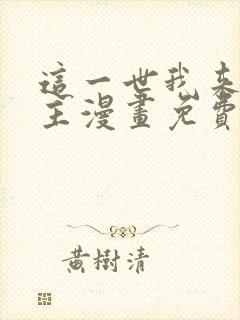 這一世我來
主漫畫免費
黃樹清